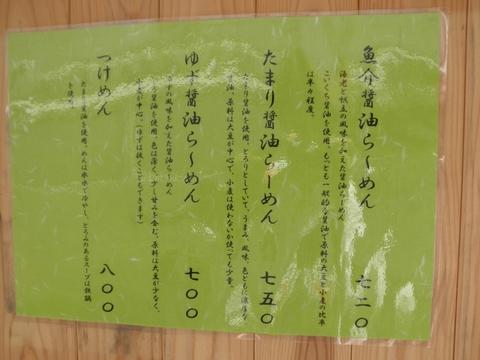 魚介醤油らーめん 七二〇
海老と帆立の風味を加えた醤油らーめん
こいくち醤油を使用。もっとも一般的な醤油で原料の大豆と小麦の比率
は半々程度。
たまり醤油らーめん 七五〇
たまり醤油を使用。とろりとしていて、うまみ、風味、色ともに濃厚な
醤油。原料は大豆が中心で、小麦は使わないか使っても少量。
ゆず醤油らーめん 七〇〇
ゆずの風味を加えた醤油らーめん
醤油を使用。色は薄く、少し甘みを含む。原料は大豆が少なく、
小麦が中心。(ゆずは抜くこともできます)
つけめん 八〇〇
たまり醤油を使用。めんは氷水で冷やし、とろみのあるスープは鉄鍋
を使用。